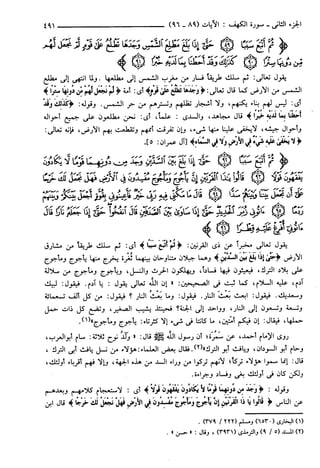 الجزء الثاني - سورة الكهف : الآيات (٨٩ - ٩٦)
٤٩١
﴿ ثُمَّ أَتْبَعَ سَبَبًا ﴿٨٩﴾ حَتَّىٰ إِذَا بَلَغَ مَطْلِعَ الشَّمْسِ وَجَدَهَا تَطْلُعُ عَلَىٰ قَوْمٍ لَّمْ نَجْعَل لَّهُم
مِّن دُونِهَا سِتْرًا ﴿٩٠﴾ كَذَٰلِكَ وَقَدْ أَحَطْنَا بِمَا لَدَيْهِ خُبْرًا ﴿٩١﴾
يقول تعالى: ثم سلك طريقاً فسار من مغرب الشمس إلى مطلعها. ولما انتهى إلى مطلع
الشمس من الأرض كما قال تعالى: ﴿ وَجَدَهَا تَطْلُعُ عَلَىٰ قَوْمٍ ﴾ أي: أمة ﴿ لَّمْ نَجْعَل لَّهُم مِّن دُونِهَا سِتْرًا ﴾
أي: ليس لهم بناء يكنهم، ولا أشجار تظلهم وتسترهم من حر الشمس. وقوله: ﴿ كَذَٰلِكَ وَقَدْ
أَحَطْنَا بِمَا لَدَيْهِ خُبْرًا ﴾ قال مجاهد، والسدي: علماً، أي: نحن مطلعون على جميع أحواله
وأحوال جيشه، لا يخفى علينا منها شيء، وإن تفرقت أممهم وتقطعت بهم الأرض، فإنه تعالى:
﴿ لَا يَخْفَىٰ عَلَيْهِ شَيْءٌ فِي الْأَرْضِ وَلَا فِي السَّمَاءِ ﴾ [آل عمران: ٥].
﴿ ثُمَّ أَتْبَعَ سَبَبًا ﴿٩٢﴾ حَتَّىٰ إِذَا بَلَغَ بَيْنَ السَّدَّيْنِ وَجَدَ مِن دُونِهِمَا قَوْمًا لَّا يَكَادُونَ
يَفْقَهُونَ قَوْلًا ﴿٩٣﴾ قَالُوا يَا ذَا الْقَرْنَيْنِ إِنَّ يَأْجُوجَ وَمَأْجُوجَ مُفْسِدُونَ فِي الْأَرْضِ فَهَلْ نَجْعَلُ لَكَ خَرْجًا
عَلَىٰ أَن تَجْعَلَ بَيْنَنَا وَبَيْنَهُمْ سَدًّا ﴿٩٤﴾ قَالَ مَا مَكَّنِّي فِيهِ رَبِّي خَيْرٌ فَأَعِينُونِي بِقُوَّةٍ أَجْعَلْ بَيْنَكُمْ وَبَيْنَهُمْ
رَدْمًا ﴿٩٥﴾ آتُونِي زُبَرَ الْحَدِيدِ حَتَّىٰ إِذَا سَاوَىٰ بَيْنَ الصَّدَفَيْنِ قَالَ انفُخُوا حَتَّىٰ إِذَا جَعَلَهُ نَارًا قَالَ
آتُونِي أُفْرِغْ عَلَيْهِ قِطْرًا ﴿٩٦﴾
يقول تعالى مخبراً عن ذي القرنين: ﴿ ثُمَّ أَتْبَعَ سَبَبًا ﴾ أي: ثم سلك طريقاً من مشارق
الأرض ﴿ حَتَّىٰ إِذَا بَلَغَ بَيْنَ السَّدَّيْنِ ﴾ وهما جبلان متناوحان بينهما ثغرة يخرج منها يأجوج ومأجوج
على بلاد الترك، فيعيثون فيها فساداً، ويهلكون الحرث والنسل، ويأجوج ومأجوج من سلالة
آدم، عليه السلام، كما ثبت في الصحيحين: « إن الله تعالى يقول: يا آدم. فيقول: لبيك
وسعديك. فيقول: ابعث بعث النار. فيقول: وما بعث النار؟ فيقول: من كل ألف تسعمائة
وتسعة وتسعون إلى النار، وواحد إلى الجنة؟ فحينئذ يشيب الصغير، وتضع كل ذات حمل
حملها، فيقال: إن فيكم أمتين، ما كانتا في شيء إلا كثرتاه: يأجوج ومأجوج »(١).
روى الإمام أحمد، عن سمرة؛ أن رسول الله ﷺ قال: « ولد نوح ثلاثة: سام أبو العرب،
وحام أبو السودان، ويافث أبو الترك »(٢). فقال بعض العلماء: هؤلاء من نسل يافث أبي الترك ،
قال: إنما سموا هؤلاء تركاً؛ لأنهم تركوا من وراء السد من هذه الجهة، وإلا فهم أقرباء أولئك،
ولكن كان في أولئك بغي وفساد وجراءة.
وقوله : ﴿ وَجَدَ مِن دُونِهِمَا قَوْمًا لَّا يَكَادُونَ يَفْقَهُونَ قَوْلًا ﴾ أي : لاستعجام كلامهم وبعدهم
عن الناس ﴿ قَالُوا يَا ذَا الْقَرْنَيْنِ إِنَّ يَأْجُوجَ وَمَأْجُوجَ مُفْسِدُونَ فِي الْأَرْضِ فَهَلْ نَجْعَلُ لَكَ خَرْجًا ﴾ قال ابن
(١) البخاري (٦٥٣٠) ومسلم (٢٢٢ / ٣٧٩) .
(٢) المسند (٥ / ٩) والترمذي (٣٩٣١) ، وقال : « حسن » .